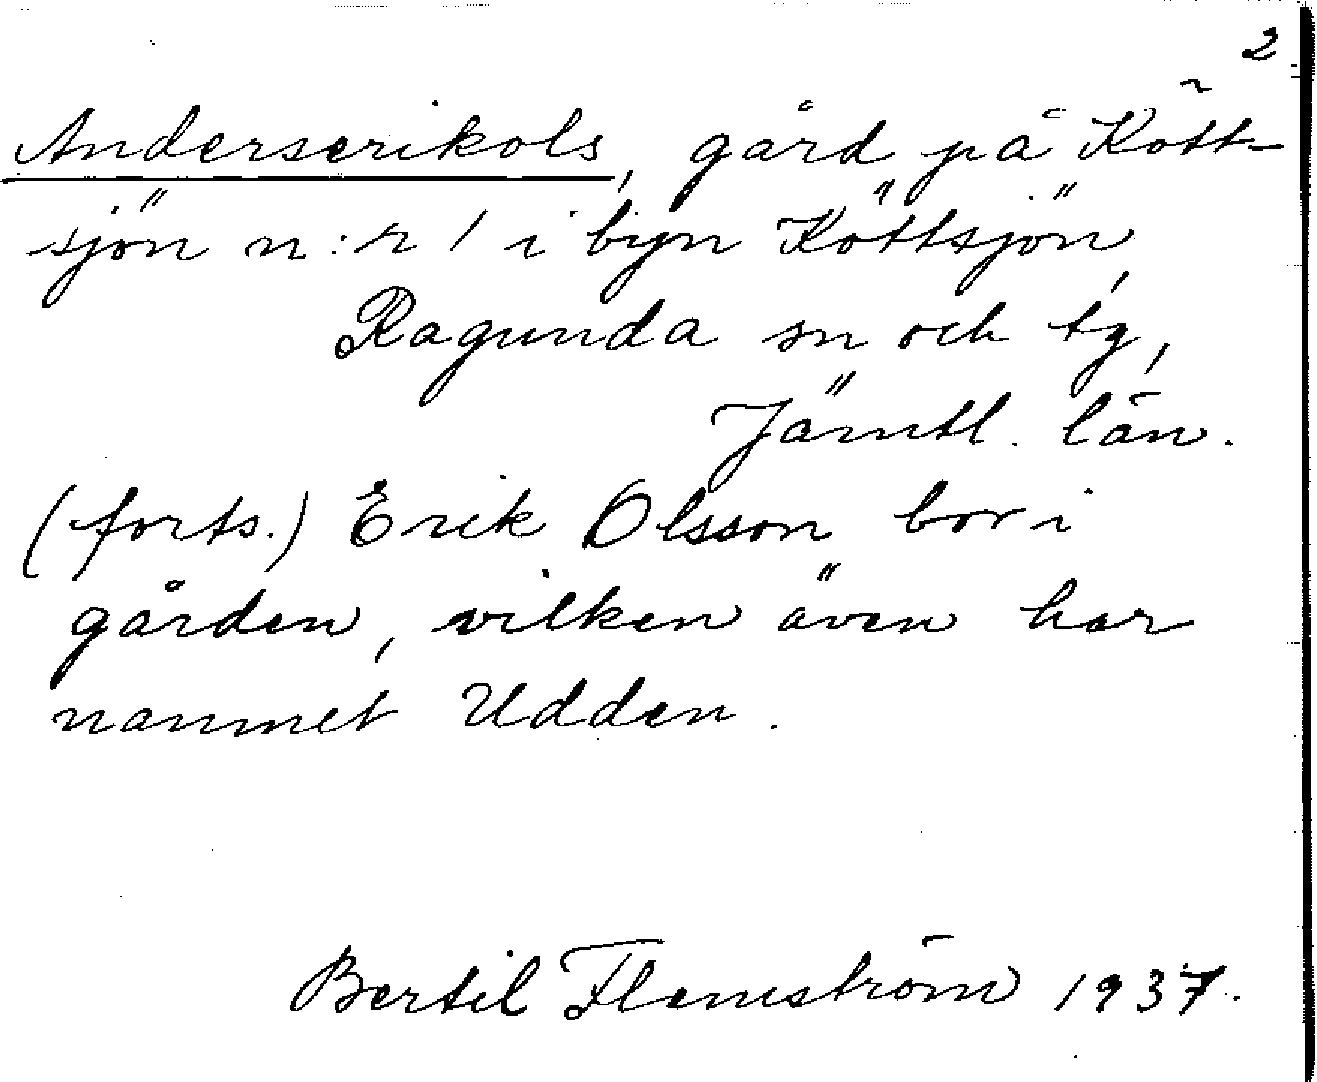 2
Anderserikols, gård på Kött-
sjön n:r 1 i byn Köttsjön,
Ragunda sn och tg,
Jämtl. län.
(forts.) Erik Olsson bor i
gården, vilken även har
namnet Udden.
Bertil Flemström 1937.